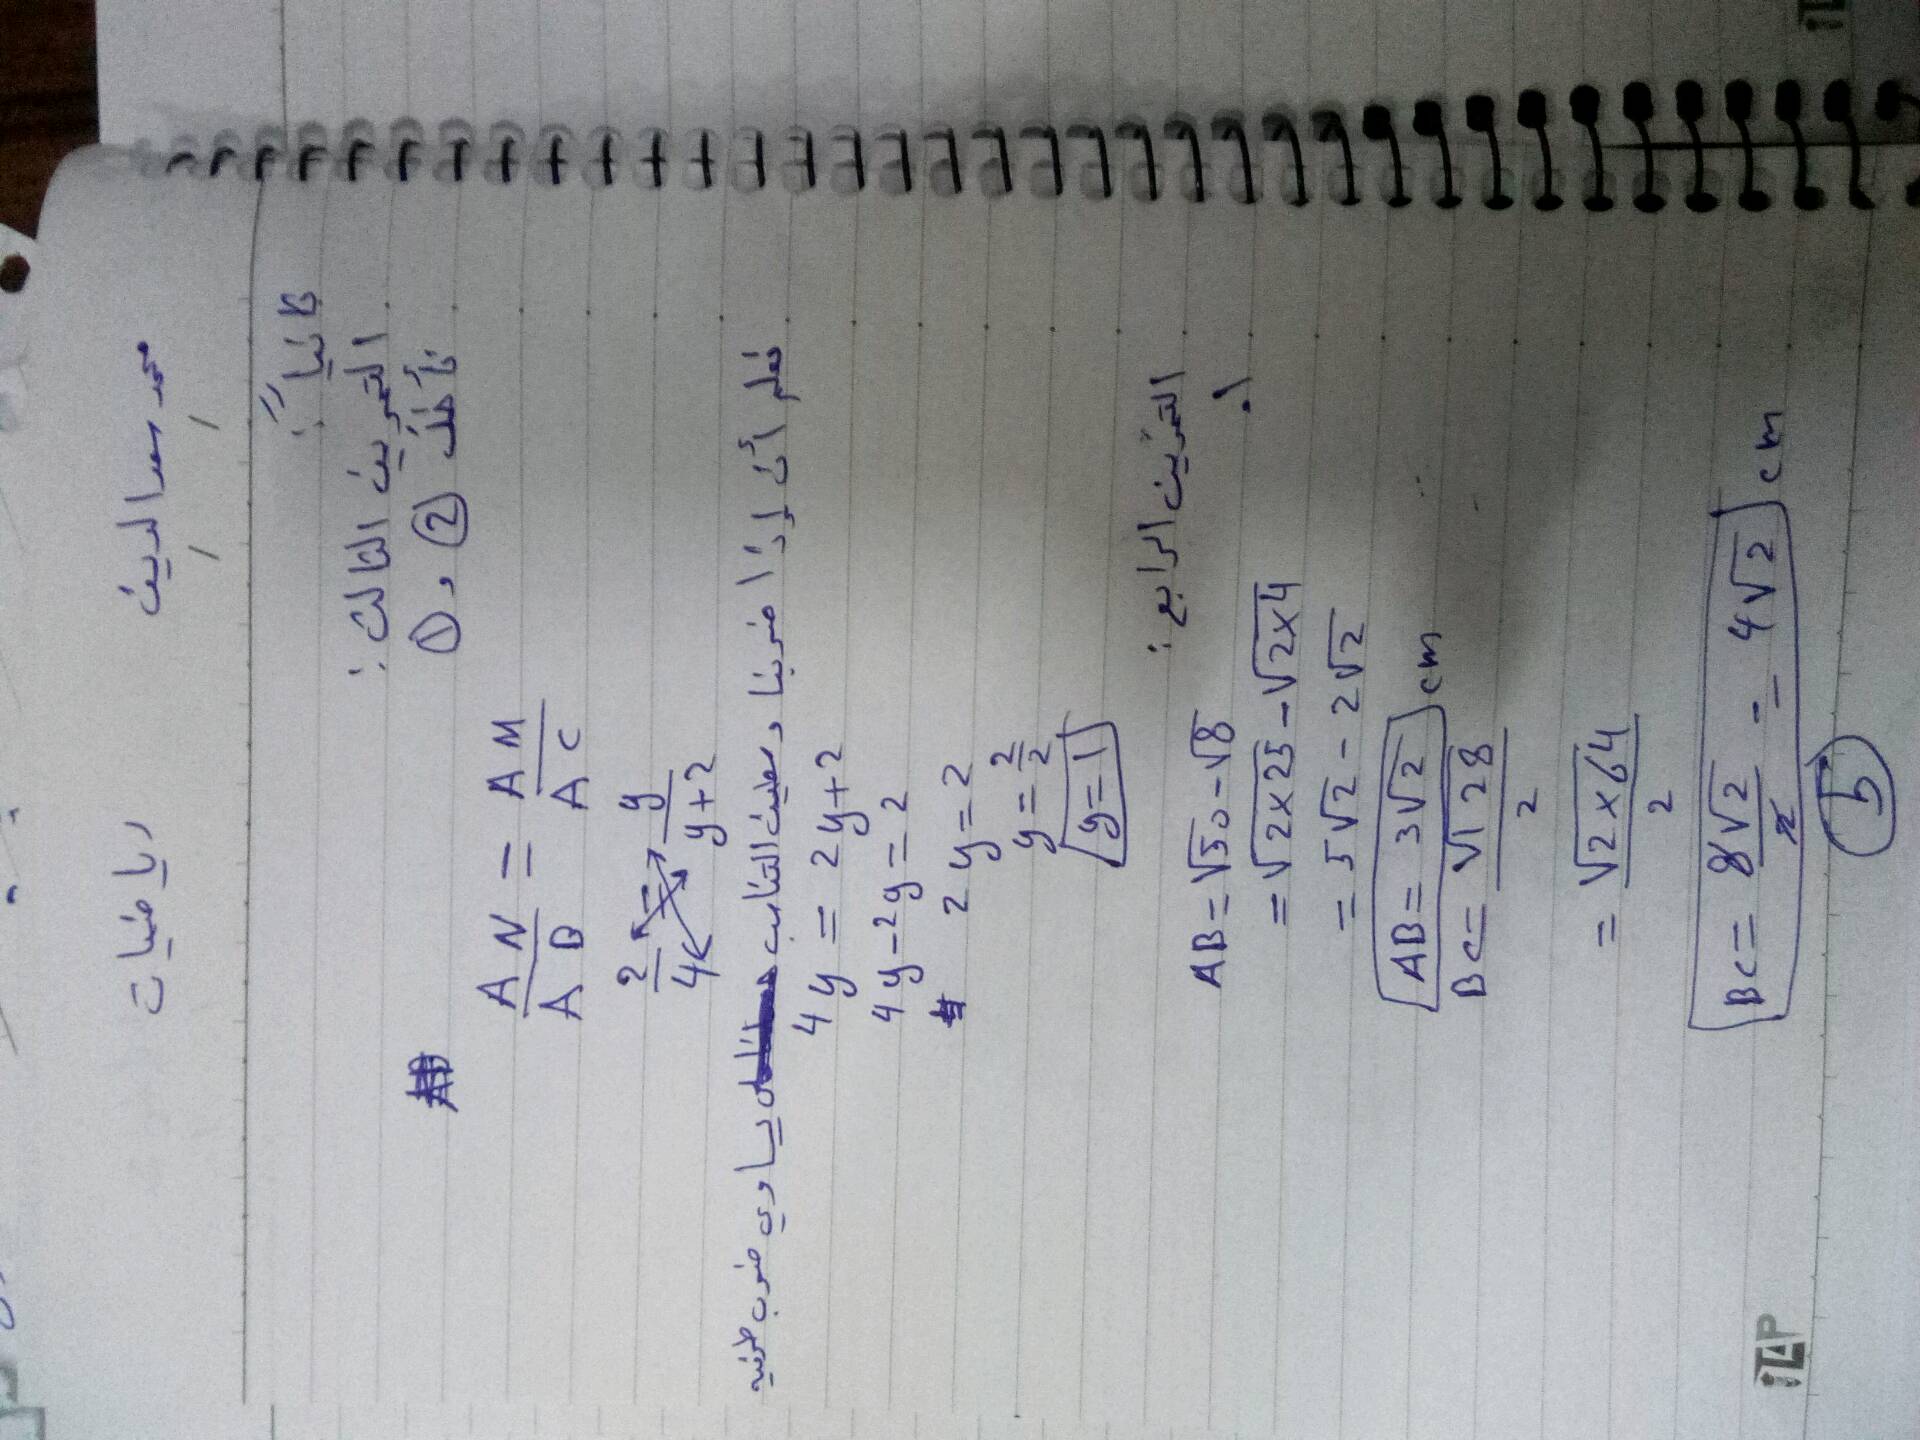 محمد سعد الدين
رياضيات
ثانياً:
التمرين الثالث:
① و ② نأخذ
AN/AB = AM/AC
2/4 = y/y+2
فعلم أن إذا ضربنا وسطين التناسب يساوي ضرب طرفيه
4y = 2y+2
4y-2y=2
2y=2
y=2/2
y=1
التمرين الرابع:
1.
AB=√50-√8
=√2×25-√2×4
=5√2-2√2
AB=3√2 cm
BC=√128/2
=√2×64/2
BC=8√2/2=4√2 cm
5
iTAP